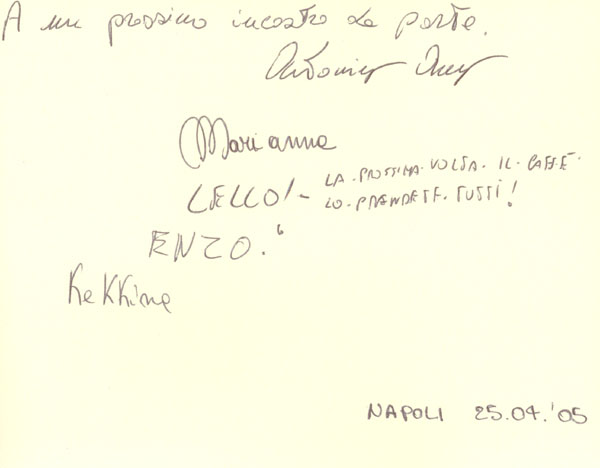 A un prossimo incontro da parte.
Marianna
LELLO! - LA. PROSSIMA. VOLTA. IL. CAFFÈ.
LO. PRENDETE. TUTTI!
ENZO.
KeKKina
NAPOLI 25.04.'05